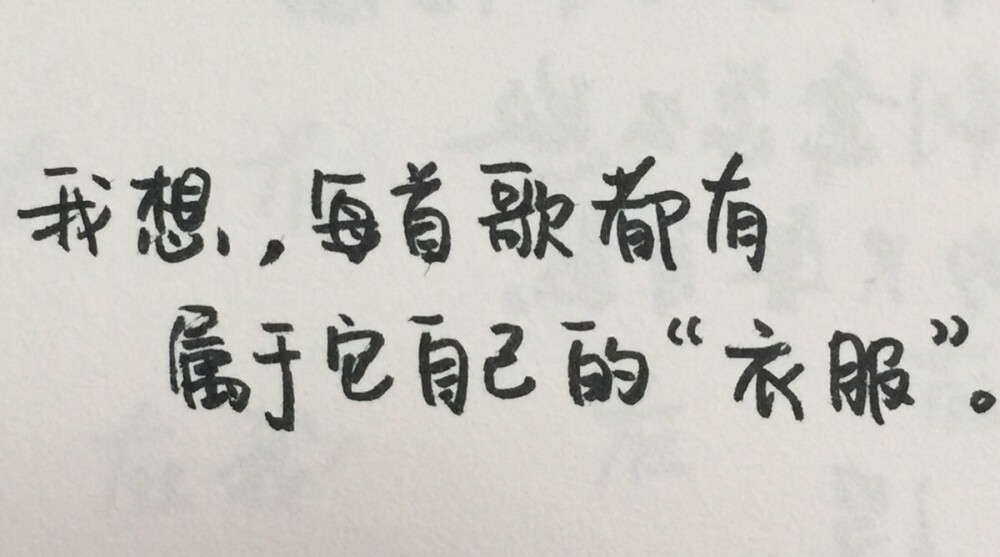 我想，每首歌都有
属于它自己的“衣服”。